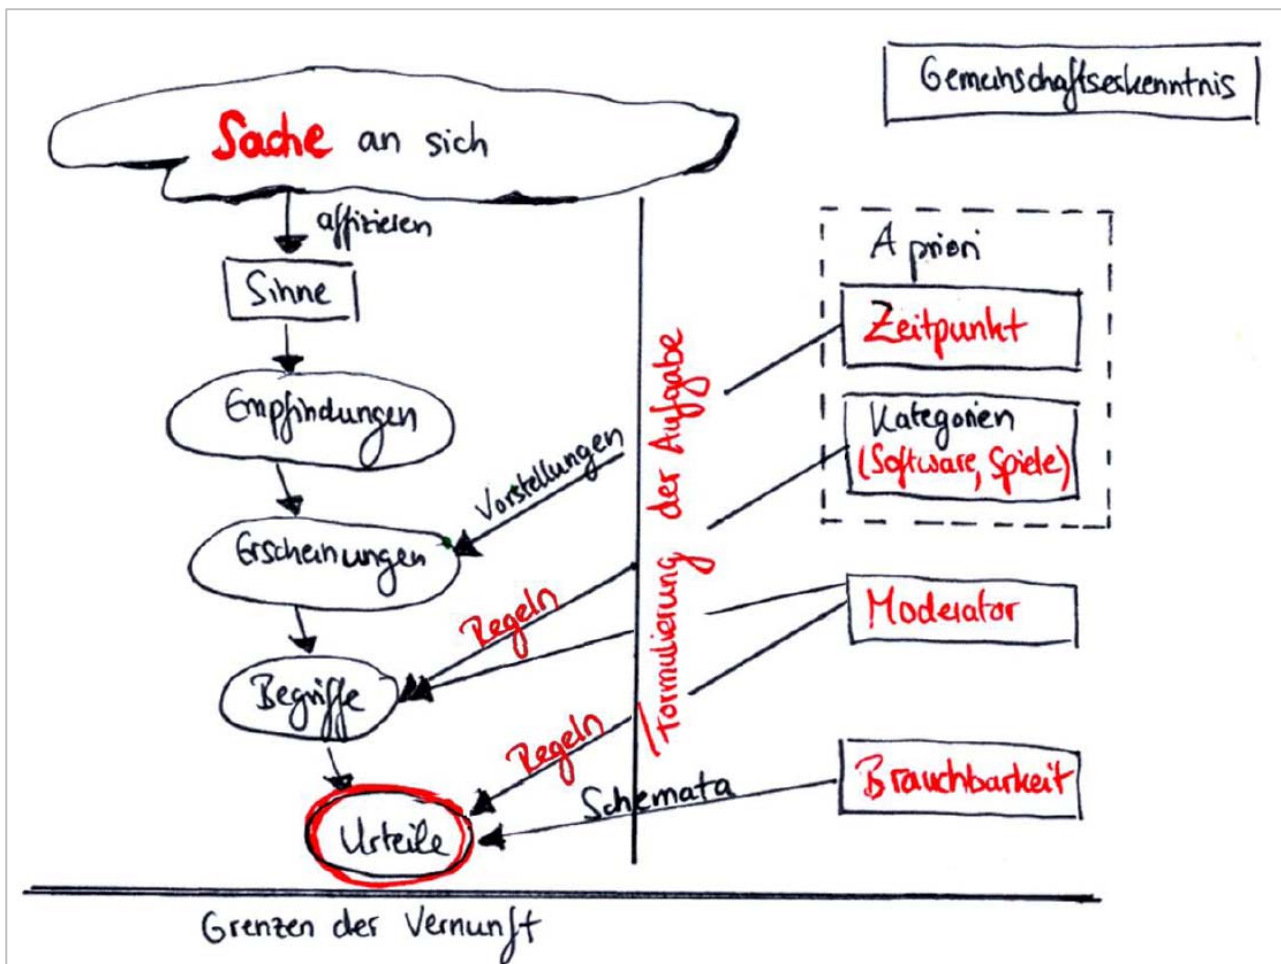 Gemeinschaftserkenntnis
Sache an sich
affizieren
Sinne
Empfindungen
Vorstellungen
Erscheinungen
Regeln
Begriffe
Regeln
Schemata
Urteile
Formulierung der Aufgabe
A priori
Zeitpunkt
Kategorien
(Software, Spiele)
Moderator
Brauchbarkeit
Grenzen der Vernunft